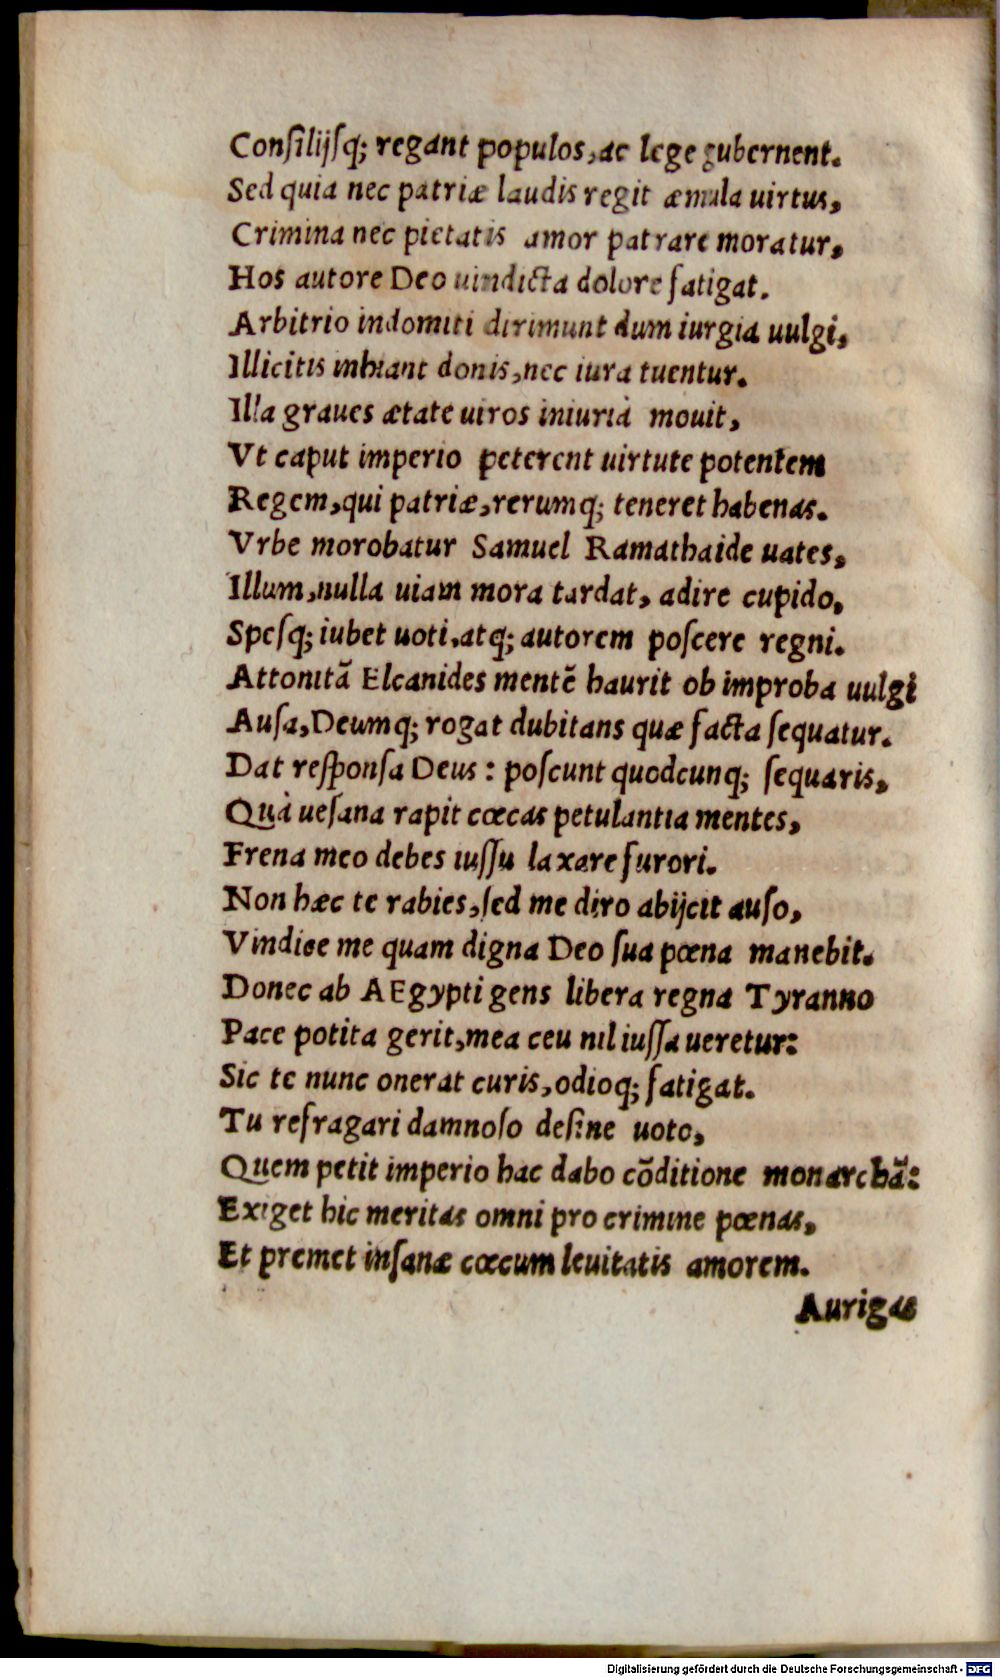 Conſilijſq; regant populos, ac lege gubernent.
Sed quia nec patriæ laudis regit æmula uirtus,
Crimina nec pietatis amor patrare moratur,
Hos autore Deo uindicta dolore fatigat.
Arbitrio indomiti dirimunt dum iurgia uulgi,
Illicitis inhiant donis, nec iura tuentur.
Illa graues ætate uiros iniurià mouit,
Vt caput imperio peterent uirtute potentem
Regem, qui patriæ, rerumq; teneret habenas.
Vrbe morobatur Samuel Ramathaide uates,
Illum, nulla uiam mora tardat, adire cupido,
Speſq; iubet uoti, atq; autorem poſcere regni.
Attonitã Elcanides mentē haurit ob improba uulgi
Auſa, Deumq; rogat dubitans quæ facta ſequatur.
Dat reſponſa Deus : poſcunt quodcunq; ſequaris,
Quà ueſana rapit cœcas petulantia mentes,
Frena meo debes iuſſu laxare furori.
Non hæc te rabies, ſed me diro abijcit auſo,
Vindice me quam digna Deo ſua pœna manebit.
Donec ab AEgypti gens libera regna Tyranno
Pace potita gerit, mea ceu nil iuſſa ueretur:
Sic te nunc onerat curis, odioq; fatigat.
Tu refragari damnoſo deſine uoto,
Quem petit imperio hac dabo cōditione monarchã:
Exiget hic meritas omni pro crimine pœnas,
Et premet inſanæ cœcum leuitatis amorem.
Aurigas
Digitalisierung gefördert durch die Deutsche Forschungsgemeinschaft - DFG